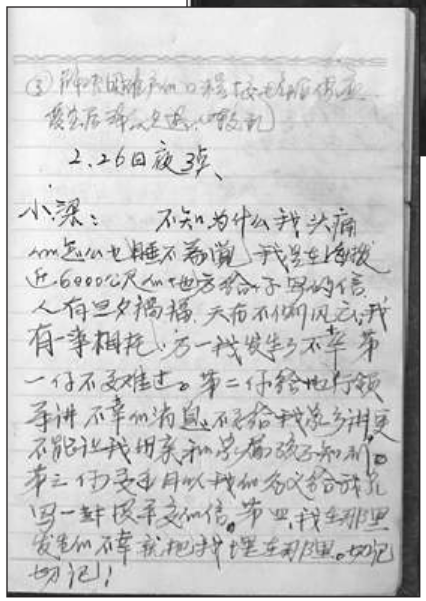 ③
2.26日夜3点、
小梁： 不知为什么我头痛
的怎么也睡不着觉 我是在海拔
近6000公尺的地方给你写的信
人有旦夕祸福、天有不测风云、我
有一事相托、万一我发生了不幸 第
一你不要难过。第二你给地行领
导讲 不幸的消息、不要给我家乡讲更
不能让我母亲和家属孩子知道。
第三你要每月以我的名义给我家
写一封报平安的信。第四、我在那里
发生的不幸就把我埋在那里。切记
切记！